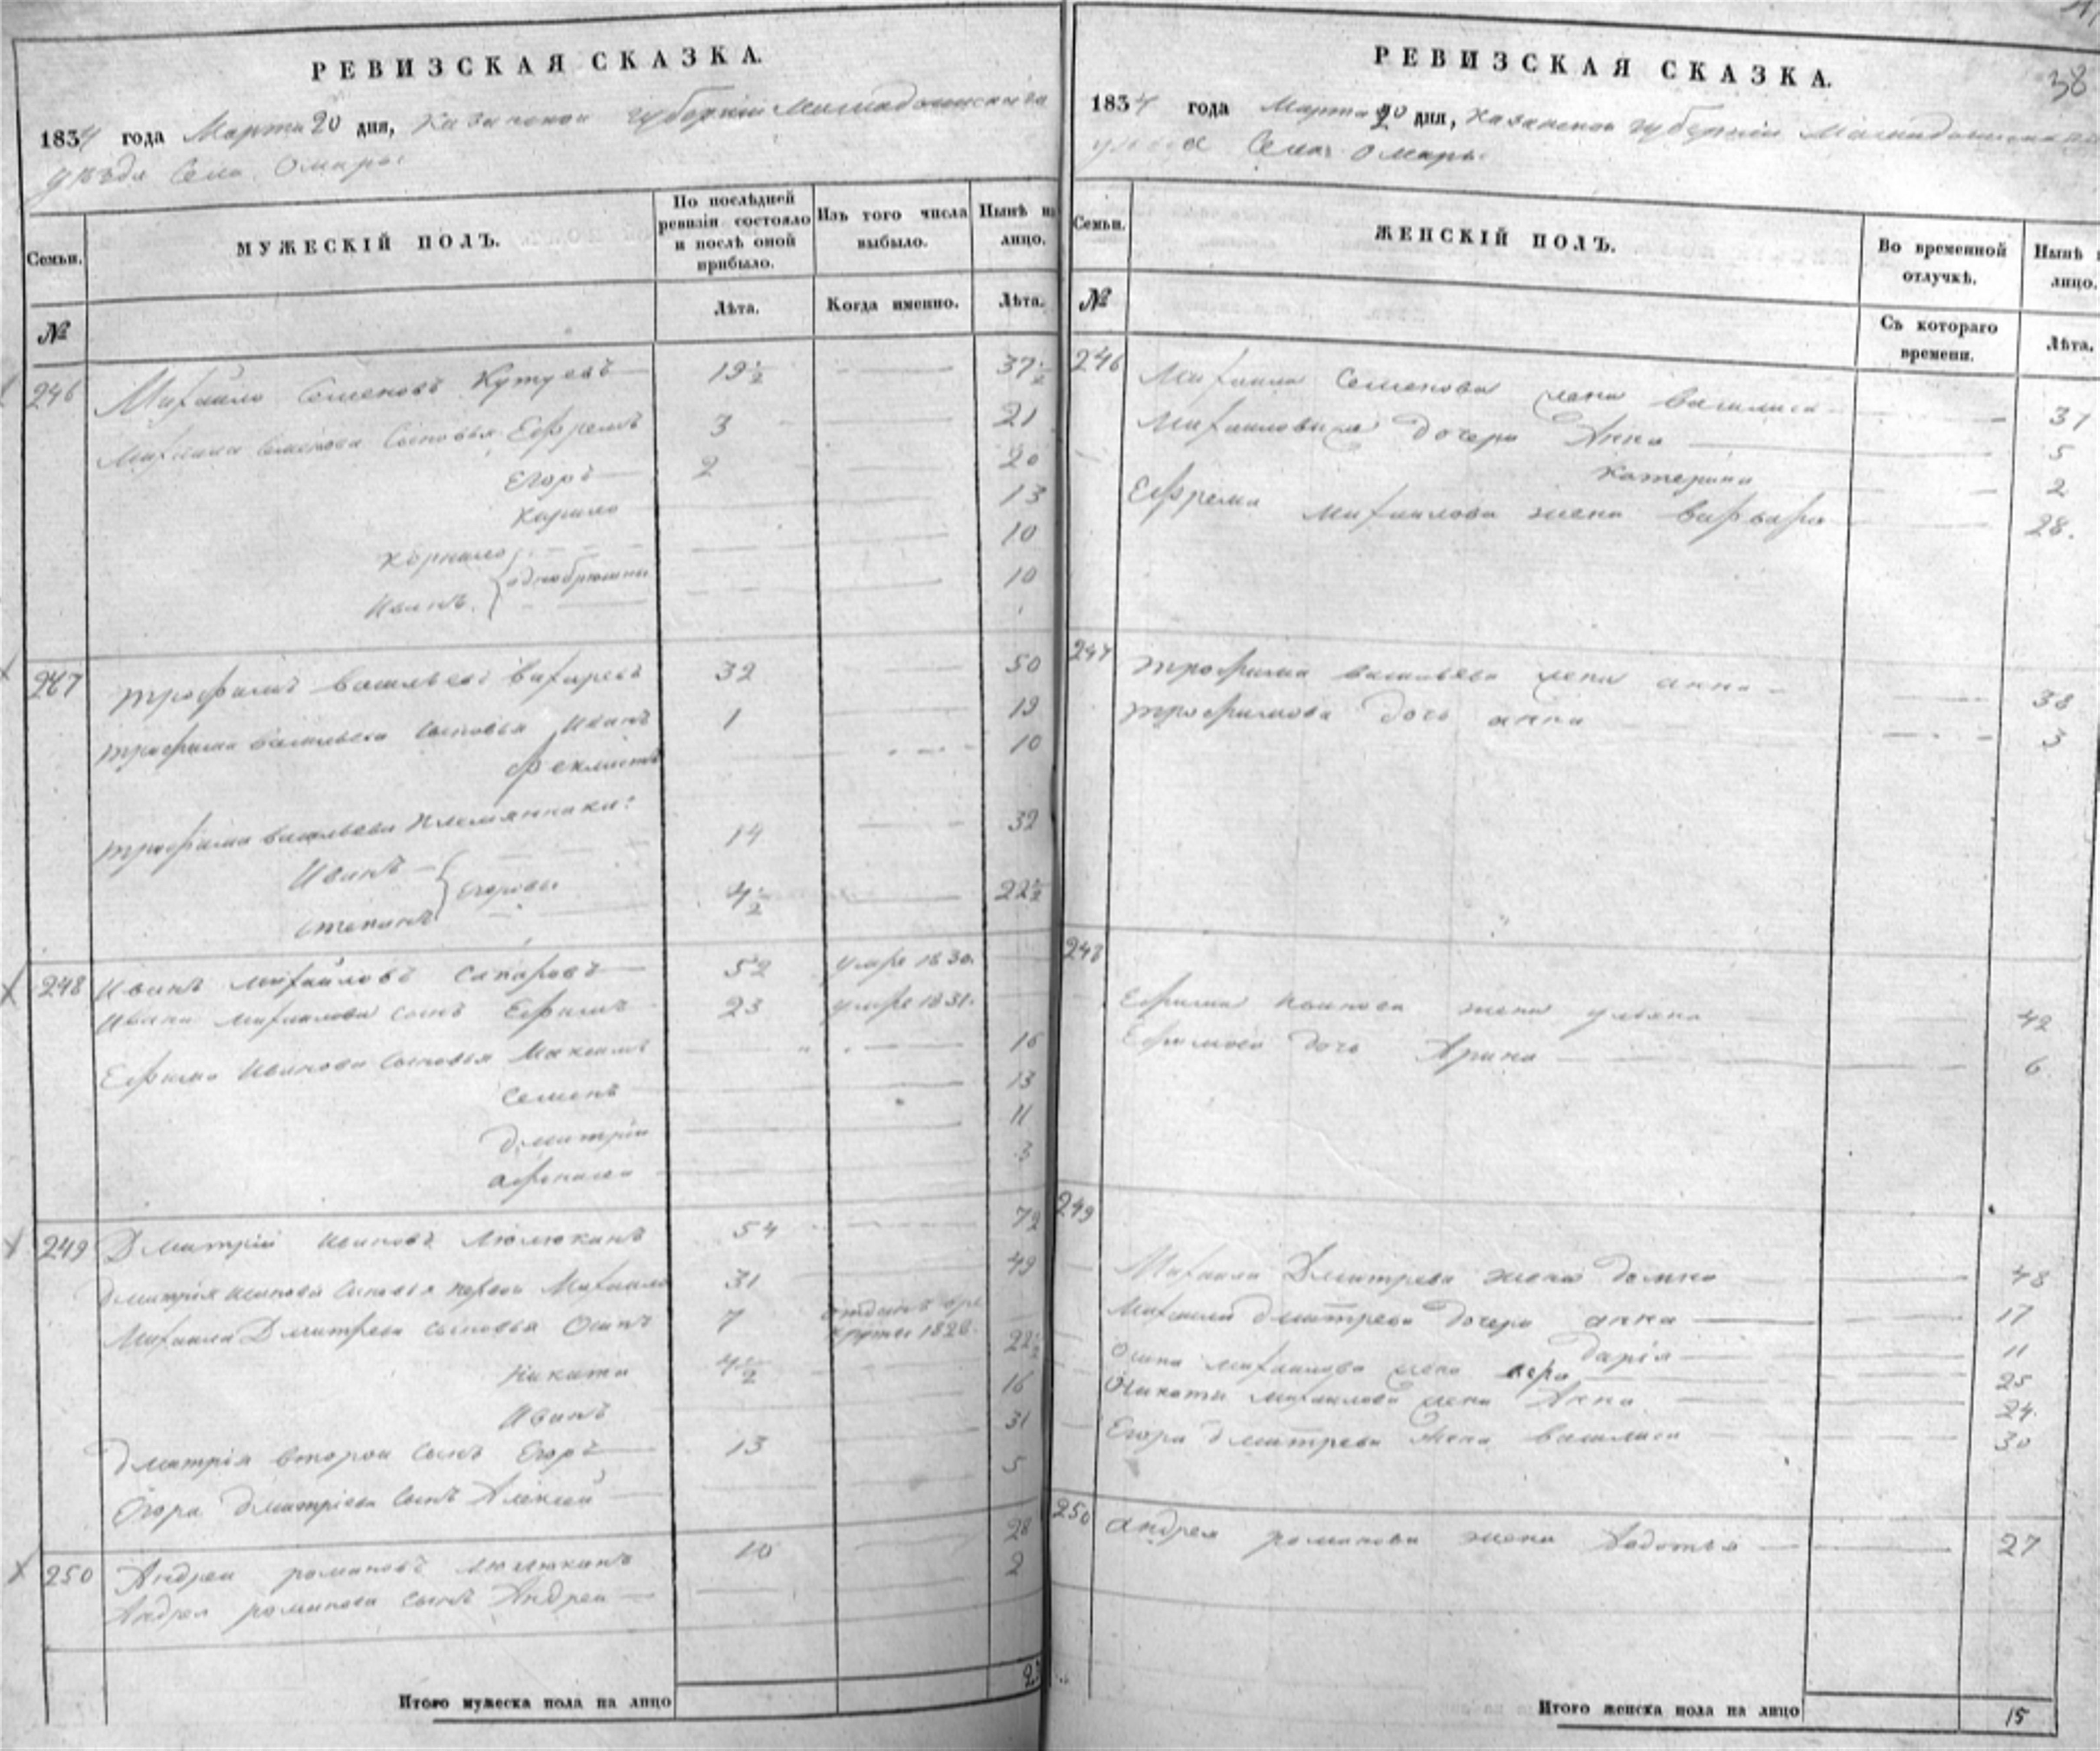 РЕВИЗСКАЯ СКАЗКА.
1834 года Марта 20 дня, Казанской губернии Мамадышскаго
уѣзда Села Омары
Семьи. МУЖЕСКІЙ ПОЛЪ. По послѣдней ревизіи состояло и послѣ оной прибыло. Изъ того числа выбыло. Нынѣ на лицо.
№ Лѣта. Когда именно. Лѣта.
246 Михайло Семеновъ Кутуевъ 19½ 37½
Михаила Семенова Сыновья Ефремъ 3 21
Егоръ 2 20
Кирило 13
Корнило 10
однобрюшны
Иванъ 10
247 Трофимъ Васильевъ Вахуревъ 32 50
Трофима Васильева Сыновья Иванъ 1 19
Феклистъ 10
Трофима Васильева Племянники:
Иванъ 14 32
Егоровы
Степанъ 4½ 22½
248 Иванъ Михайловъ Сапаровъ 52 умре 1830.
Ивана Михаилова сынъ Ефимъ 23 умре 1831.
Ефима Иванова Сыновья Максимъ 16
Семенъ 13
Дмитріи 11
Афонасеи 3
249 Дмитріи Ивановъ Люлюкинъ 54 72
Дмитрія Иванова Сыновья первои Михаила 31 49
Михаила Дмитрева Сыновья Осипъ 7 отданъ в ре
круты 1828.
Никита 4½ 22½
Иванъ 16
Дмитрія второи сынъ Егоръ 13 31
Егора Дмитріева сынъ Алексѣи 5
250 Андреи романовъ Люлюкинъ 10 28
Андрея романова сынъ Андреи 2
Итого мужеска пола на лицо
РЕВИЗСКАЯ СКАЗКА.
38
1834 года Марта 20 дня, Казанской губерніи Мамадышскаго
уезда Села Омары
Семьи. ЖЕНСКІЙ ПОЛЪ. Во временной отлучкѣ. Нынѣ на лицо.
№ Съ котораго времени. Лѣта.
246 Михаила Семенова жена Василиса 37
Михаиловы дочери Анна 5
Катерина 2
Ефрема Михаилова жена Варвара 28.
247 Трофима Васильева жена анна 38
Трофимова дочь анна 3
248
Ефима Иванова жена ульяна 42
Ефимова дочь Арина 6
249
Михаила Дмитрева жена домна 48
Михаила Дмитрева дочери анна 17
дарія 11
Осипа Михаилова жена вера 25
Никиты Михаилова жена Анна 24.
Егора Дмитрева жена Василиса 30
250 Андрея романова жена Авдотья 27
Итого женска пола на лицо 15